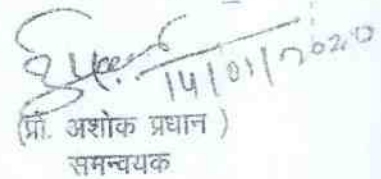 14/01/2020
(प्रो. अशोक प्रधान )
समन्वयक